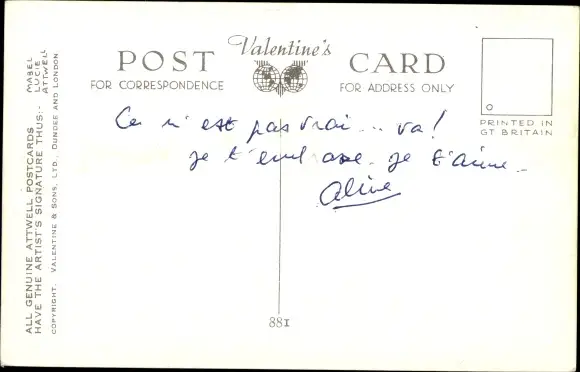 Valentine's
POST CARD
FOR CORRESPONDENCE
FOR ADDRESS ONLY
PRINTED IN
GT BRITAIN
Ce n'est pas vrai... va!
je t'embrasse. je t'aime.
Aline
881
ALL GENUINE ATTWELL POSTCARDS
HAVE THE ARTIST'S SIGNATURE THUS:-
MABEL
LUCIE
ATTWELL
COPYRIGHT. VALENTINE & SONS, LTD., DUNDEE AND LONDON